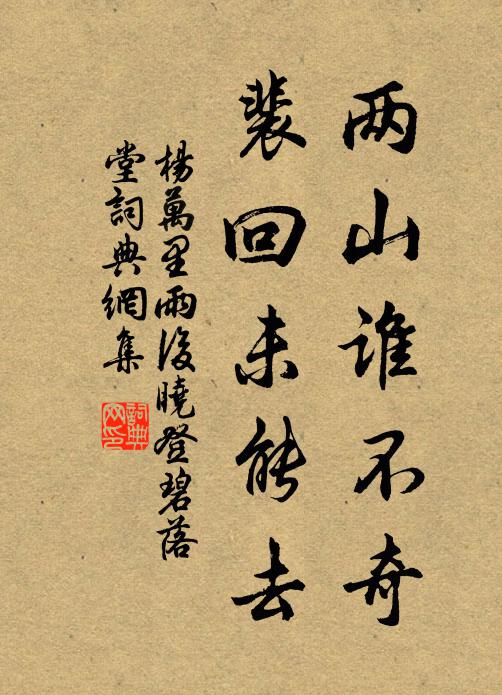 两山谁不奇
裴回未能去
楊萬里雨後曉登碧落
堂詞典網集
詞典网印